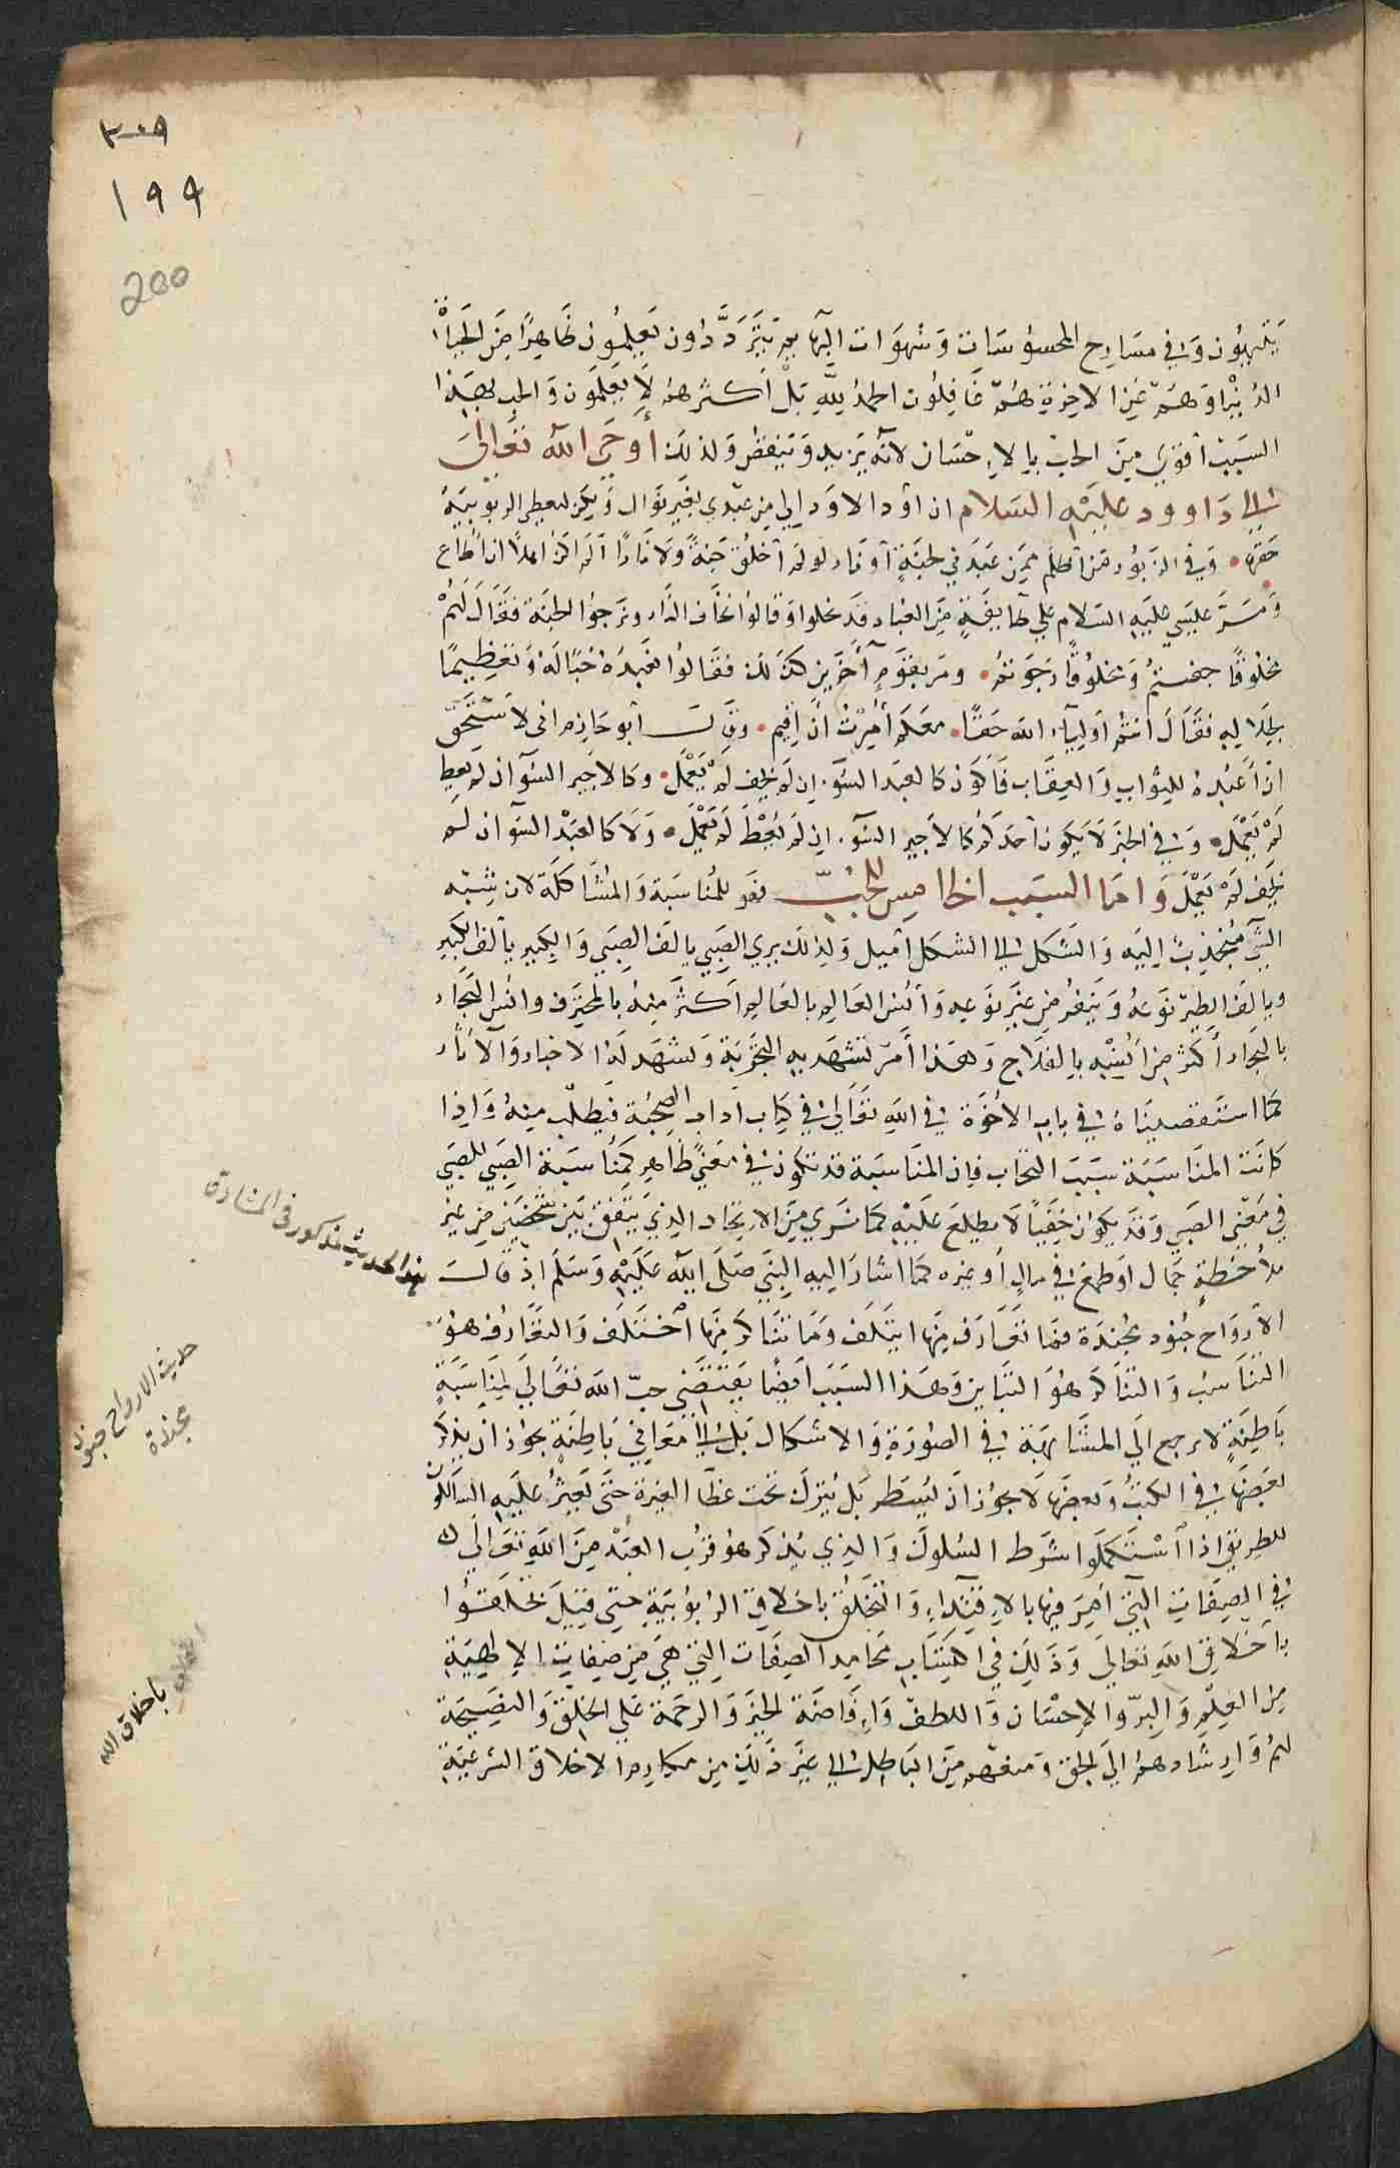 ٣٠٩
١٩٩
200
يتيهون وفي مسارح المحسوسات وشهوات البهايم يترددون يعلمون ظاهرًا من الحياة
الدنيا وهم عن الاخرة هم غافلون الحمد لله بل أكثرهم لا يعلمون والحب بهذا
السبب أقوي من الحب بالإحسان لأنه يزيد وينقص ولذلك أوحى الله تعالى
الي داوود عليه السلام ان أود الاود إلي من عبدني لغير نوال ولكن ليعطي الربوبية
حقها • وفي الزبور من أظلم ممن عبدني لجنةٍ أو نار لو لم أخلق جنةً ولا نارًا ألم اكن اهلًا ان أطاع
ومر عليسي عليه السلام علي طايفةٍ من العباد قد نحلوا وقالوا نخاف النار ونرجوا الجنة فقال لهم
مخلوقًا خفتم ومخلوقًا رجوتم • ومر بقومٍ آخرين كذلك فقالوا نعبده حبًا له وتعظيمًا
لجلاله فقال أنتم أولياء الله حقًا • معكم أمرت أن أقيم • وقال أبو حازم اني لاستحي
ان أعبده للثواب والعقاب فأكون كالعبد السوء ان لم يخف لم يعمل • وكالاجير السوء ان لم يعط
لم يعمل • وفي الخبر لا يكون أحدكم كالأجير السوء ان لم يعط لم يعمل • ولا كالعبد السوء ان لم
يخف لم يعمل واما السبب الخامس للحب فهو للمناسبة والمشاكلة لان شبه
الشيء منجذب اليه والشكل الي الشكل أميل ولذلك يري الصبي يالف الصبي والكبير يألف الكبير
ويالف الطير نوعه وينفر من غير نوعه وأنس العالم بالعالم أكثر منه بالمحترف وانس النجار
بالنجار أكثر من أنسه بالفلاح وهذا أمر تشهد به التجربة وتشهد له الاخبار والآثار
كما استقصيناه في باب الأخوة في الله تعالي في كتاب آداب الصحبة فيطلب منه واذا
كانت المناسبة سبب التحاب فان المناسبة قد تكون في معنيً ظاهر كمناسبة الصبي للصبي
في معني الصبي وقد يكون خفيًا لا يطلع عليه كما نري من الاتحاد الذي يتفق بين شخصين من غير
ملاحظة جمال او طمع في مالٍ أو غيره كما اشار اليه النبي صلى الله عليه وسلم اذ قال
الأرواح جنود مجندة فما تعارف منها ايتلف وما تناكر منها اختلف والتعارف هو
التناسب والتناكر هو التباين وهذا السبب أيضًا يقتضي حب الله تعالي لمناسبةٍ
باطنةٍ لا يرجع الي المشابهة في الصورة والاشكال بل الي معاني باطنة يجوز ان يذكر
بعضها في الكتب وبعضها لا يجوز أن يسطر بل يترك تحت غطا الغيرة حتى يعثر عليه السالكون
للطريق اذا استكملوا شرط السلوك والذي يذكر هو قرب العبد من الله تعالي
في الصفات التي أمر فيها بالإقتداء والتخلق باخلاق الربوبية حتى قيل تخلقوا
بأخلاق الله تعالي وذلك في اكتساب محامد الصفات التي هي من صفات الإلهية
من العلم والبر والإحسان واللطف وإفاضة الخير والرحمة علي الخلق والنصيحة
لهم وارشادهم الي الحق ومنعهم من الباطل الي غير ذلك من مكارم الاخلاق الشرعية
هذا الحديث مذكور في المشارق
حديث الارواح جنود
مجندة
باخلاق الله